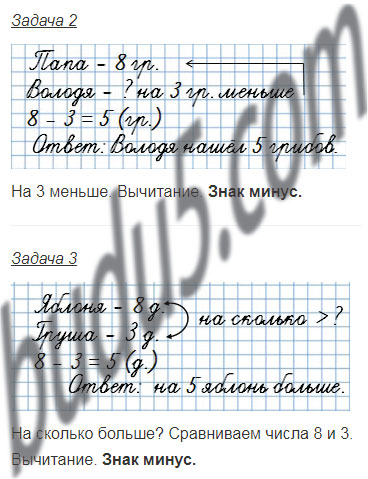 Задача 2
Папа – 8 гр.
Володя – ? на 3 гр. меньше
8 – 3 = 5 (гр.)
Ответ: Володя нашёл 5 грибов.
На 3 меньше. Вычитание. Знак минус.
Задача 3
Яблоня – 8 д.
Груша – 3 д.
на сколько > ?
8 – 3 = 5 (д.)
Ответ: на 5 яблонь больше.
На сколько больше? Сравниваем числа 8 и 3.
Вычитание. Знак минус.
pndu5.com